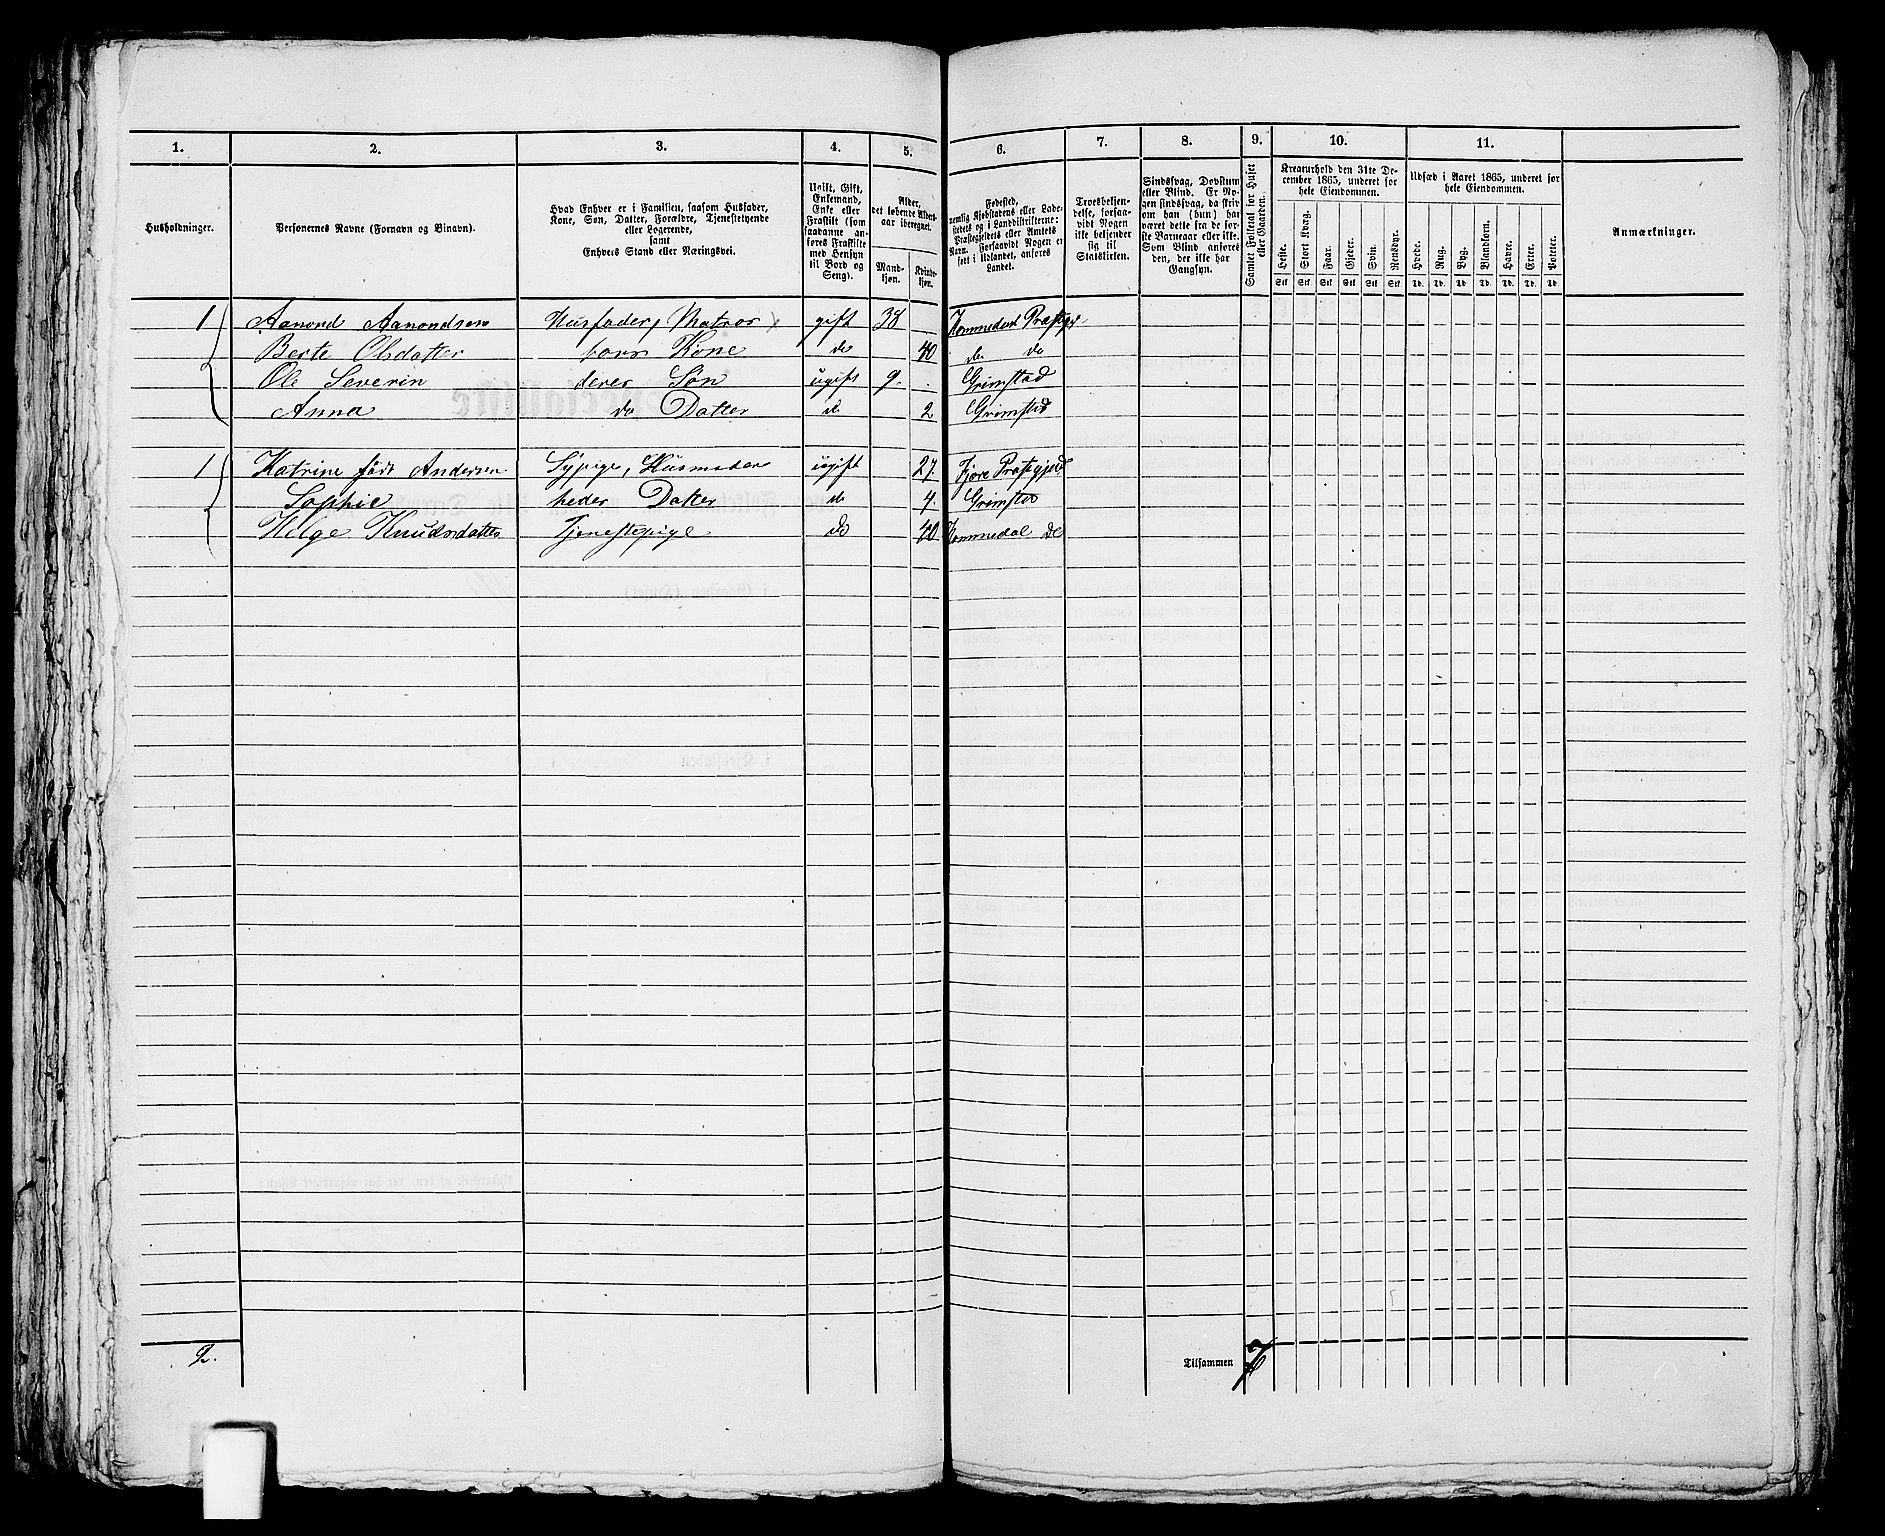 1. 2. 3. 4. 5. 6. 7. 8. 9. 10. 11.
Husholdninger.
Personernes Navne (Fornavn og Binavn).
Hvad Enhver er i Familien, saasom Husfader,
Kone, Søn, Datter, Forældre, Tjenestetyende
eller Logerende,
samt
Enhvers Stand eller Næringsvei.
Ugift, Gift,
Enkemand,
Enke eller
Fraskilt (som
saadanne an-
føres Fraskilte
med Hensyn
til Bord og
Seng).
Alder,
det løbende Alders-
aar iberegnet.
Mand-
kjøn.
Kvinde-
kjøn.
Fødested,
nemlig Kjøbstadens eller Lade-
stedets og i Landdistrikterne:
Præstegjeldets eller Amtets
Navn. Forsaavidt Nogen er
født i Udlandet, anføres
Landet.
Troesbekjen-
delse, forsaa-
vidt Nogen
ikke bekjender
sig til
Statskirken.
Sindssvag, Døvstum
eller Blind. Er No-
gen sindssvag, da skriv
om han (hun) har
været dette fra de før-
ste Barneaar eller ikke.
Som Blind anføres
den, der ikke har
Gangsyn.
Samlet Folketal for Huset
eller Gaarden.
Kreaturhold den 31te De-
cember 1865, underet for
hele Eiendommen.
Heste. Stort Kvæg. Faar. Gjeder. Svin. Rensdyr.
Stk. Stk. Stk. Stk. Stk. Stk.
Udsæd i Aaret 1865, underet for
hele Eiendommen.
Hvede. Rug. Byg. Blandkorn. Havre. Erter. Poteter.
Td. Td. Td. Td. Td. Td. Td.
Anmærkninger.
1 Aanond Aanondsen Husfader, Matros gift 38
Berte Olsdatter hans Kone do 40 do do
Ole Severin deres Søn ugift 9. Grimstad
Anna do Datter d. 2 Grimstad
1 Katrine født Andersen Sypige, Husmoder ugift 27. Præstegjeld
Sophie hedes Datter do 4. Grimstad
Helge Knudsdatter Tjenestepige do 40 do
2. Tilsammen 7